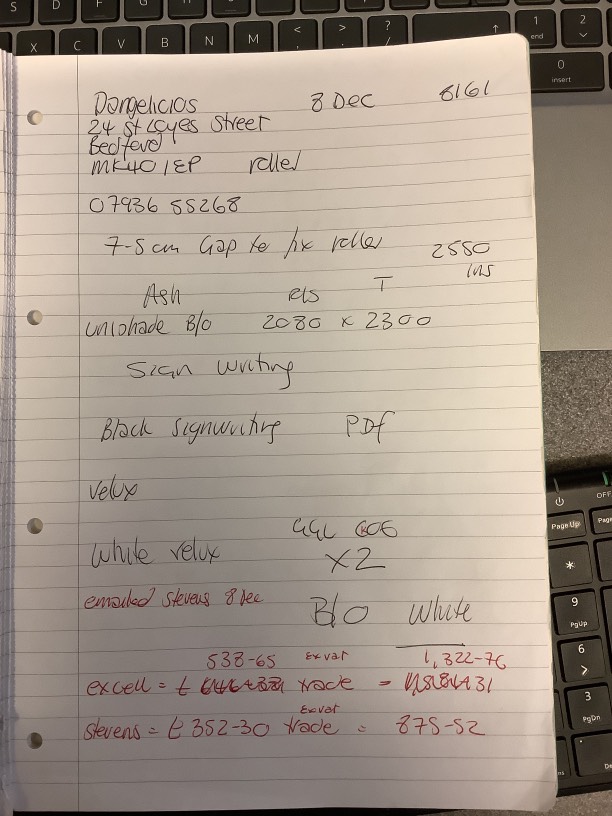 Dangelicios 8 Dec 8161
24 St Loyes Street
Bedford
MK40 1EP roller
07936 55268
7-5cm Gap to fix roller 2550
ins
Ash ets T
unishade B/O 2080 x 2300
Sign writing
Black signwriting PDF
Velux
GGL
White velux X2
emailed stevens 8 Dec B/O White
538-65 Exvat 1,322-76
excell = £ trade =
Exvat
stevens = £352-30 trade = 875-52
S D F G H J K L
X C V B N M < > ? /
1 end 2
0 insert
OFF
Page Up Page
*
9 PgUp
6 >
3 PgDn